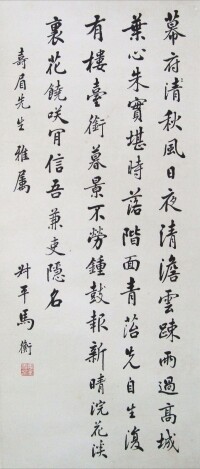 幕府清秋風日夜清澹雲踈雨過高城
葉心朱實堪時落階面青苔先自生復
有樓臺銜暮景不勞鍾鼓報新晴浣花溪
裏花饒咲肎信吾兼吏隱名
壽眉先生雅屬
叔平馬衡